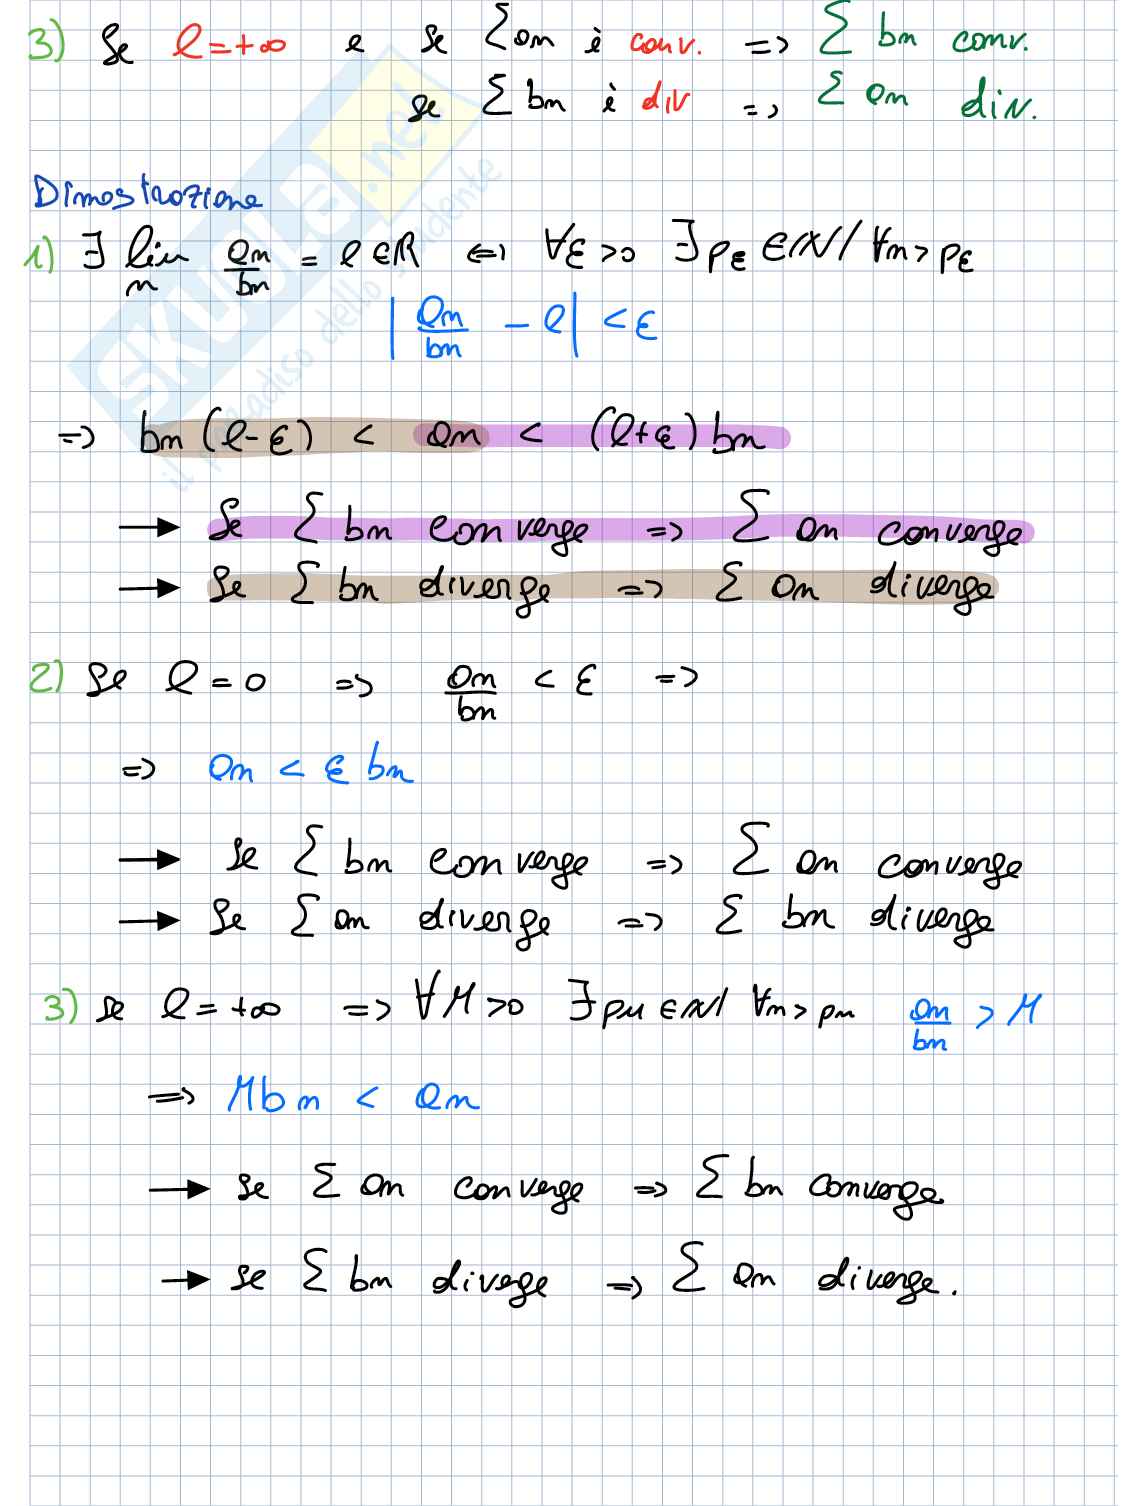 3) Se l=+∞ e se Σan è conv. => Σ bn conv.
se Σ bn è div => Σ an div.
Dimostrazione
1) ∃ lim n an/bn = l ∈ℝ <=> ∀ε>0 ∃pε∈ℕ/ ∀n>pε
| an/bn - l | < ε
=> bn (l-ε) < an < (l+ε) bn
→ Se Σ bn converge => Σ an converge
→ Se Σ bn diverge => Σ an diverge
2) Se l=0 => an/bn < ε =>
=> an < ε bn
→ se Σ bn converge => Σ an converge
→ Se Σ an diverge => Σ bn diverge
3) se l=+∞ => ∀M>0 ∃pM∈ℕ/ ∀n>pM an/bn > M
=> Mbn < an
→ se Σ an converge => Σ bn converge
→ se Σ bn diverge => Σ an diverge.
SKUOLA.net
il paradiso dello studente